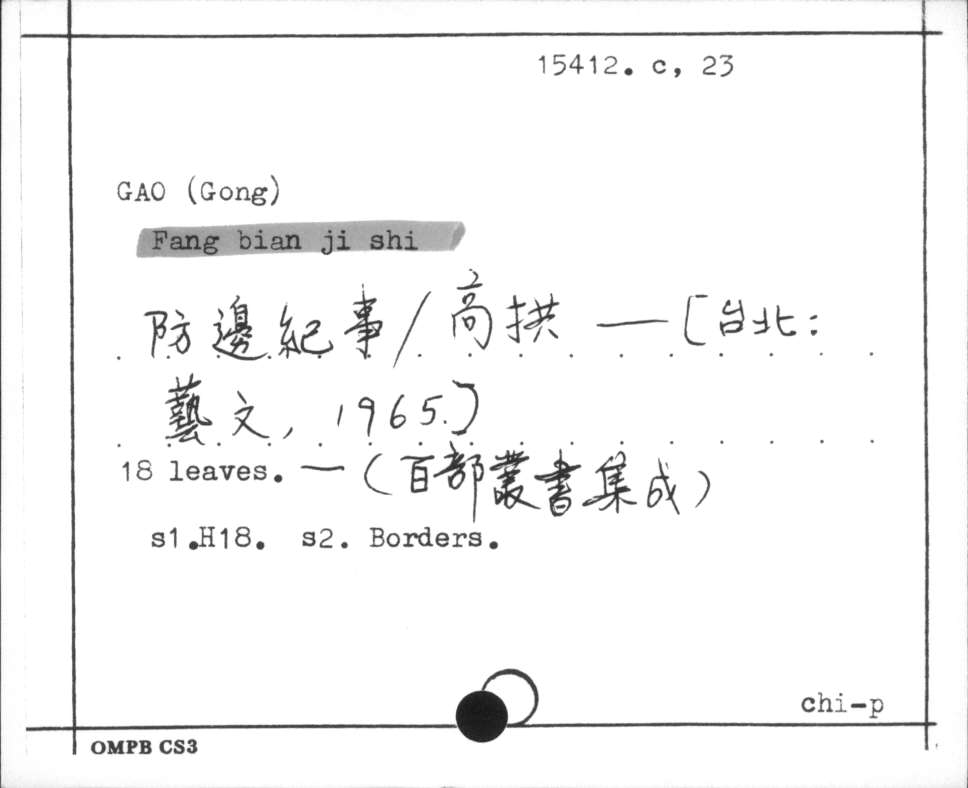 15412. c, 23
GAO (Gong)
Fang bian ji shi
防邊紀事/高拱 — [台北:
藝文, 1965.]
18 leaves. — (百部叢書集成)
s1.H18. s2. Borders.
chi-p
OMPB CS3